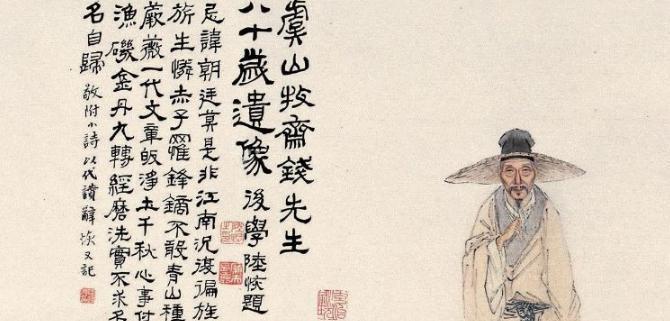 虞山牧齋錢先生
八十歲遺像 後學陸恢題
忌諱朝廷莫是非江南況復徧旌
旂生憐赤子罹鋒鏑不青山種
蕨薇一代文章皈淨土千秋心事付
漁磯金丹九轉經磨洗實不求名
名自歸 敬附小詩以代讚辭 恢又記